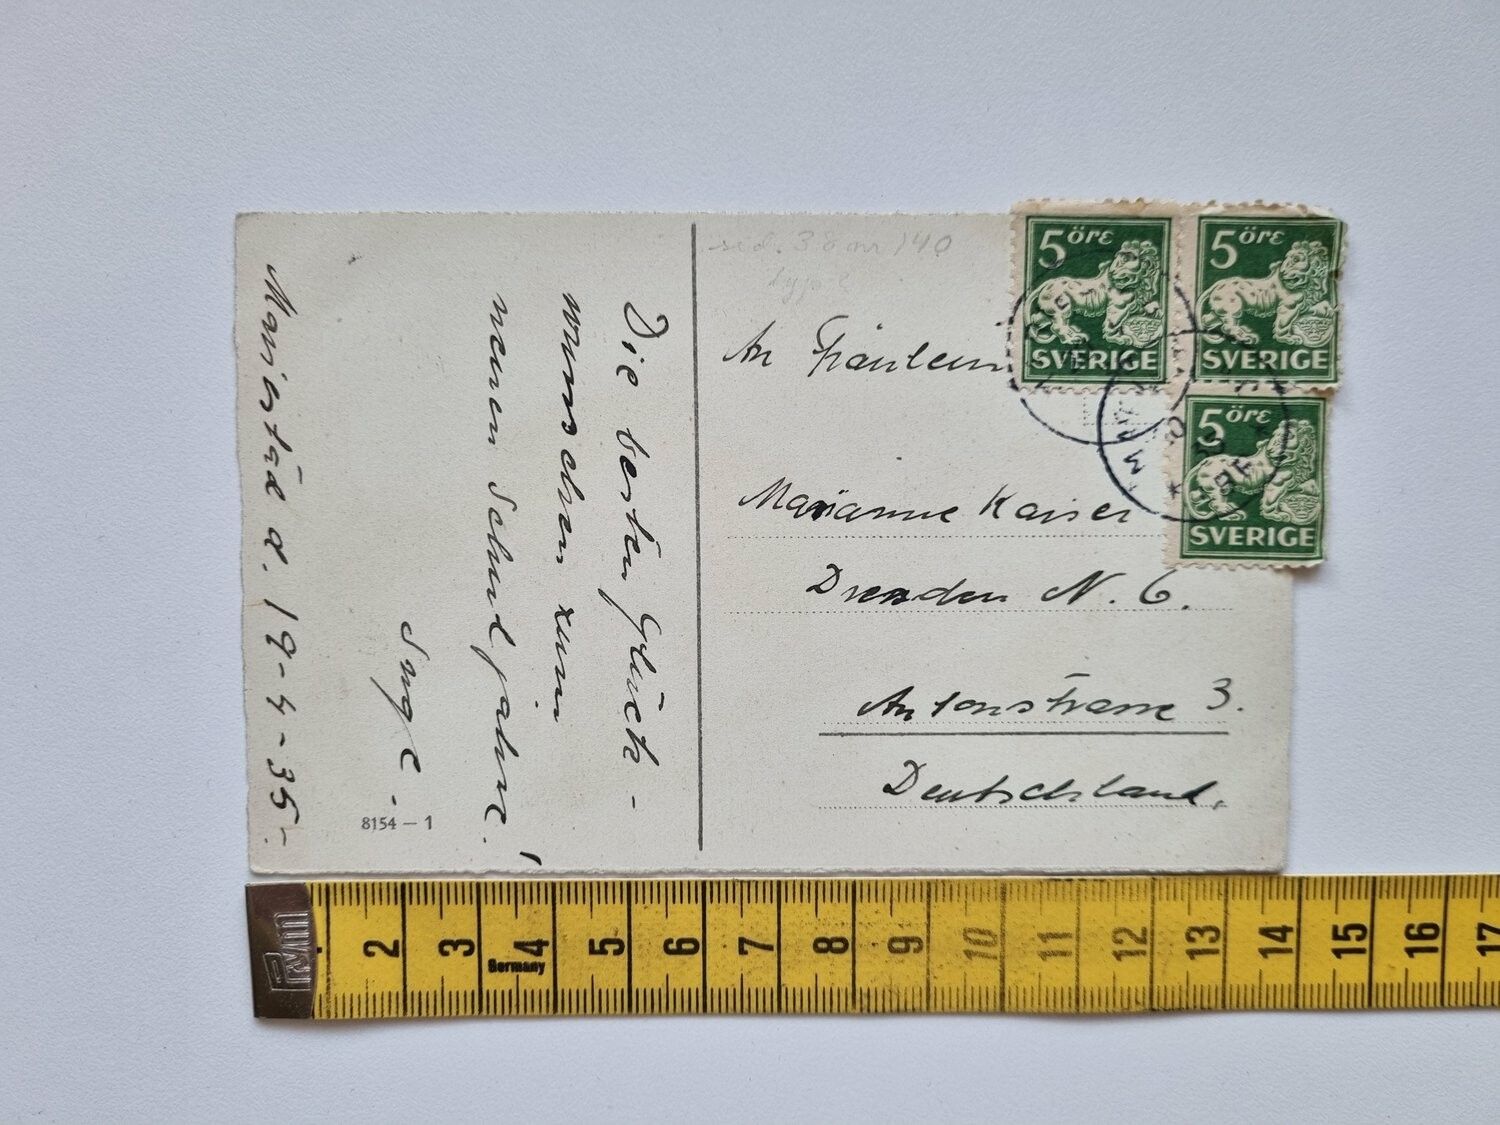 Die besten Glück-
wunschen zum
neuen Schuljahre!
Inge.
Mariestad d. 19-4-35.
8154 – 1
An Fräulein
Marianne Kaiser
Dresden N. 6.
Antonstrasse 3.
Deutschland.
5 öre
SVERIGE
5 öre
SVERIGE
5 öre
SVERIGE
PRYM
2 3 4 5 6 7 8 9 10 11 12 13 14 15 16 17
Germany